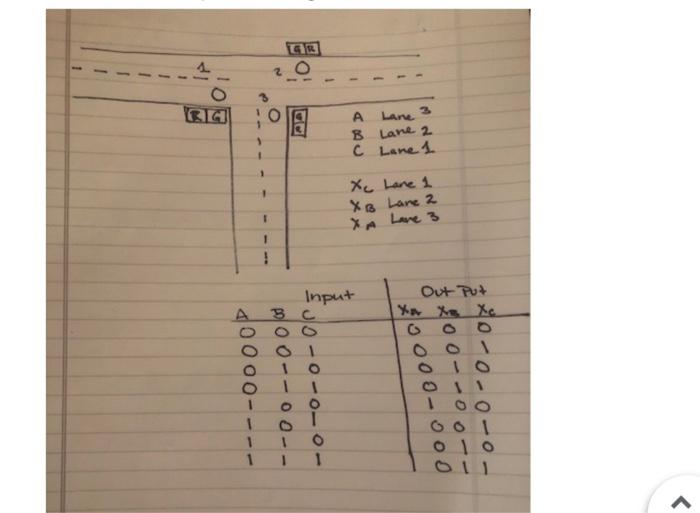 G R
1
2
3
R G
G
R
A Lane 3
B Lane 2
C Lane 1
XC Lane 1
XB Lane 2
XA Lane 3
Input Out Put
A B C XA XB XC
0 0 0 0 0 0
0 0 1 0 0 1
0 1 0 0 1 0
0 1 1 0 1 1
1 0 0 1 0 0
1 0 1 0 0 1
1 1 0 0 1 0
1 1 1 0 1 1